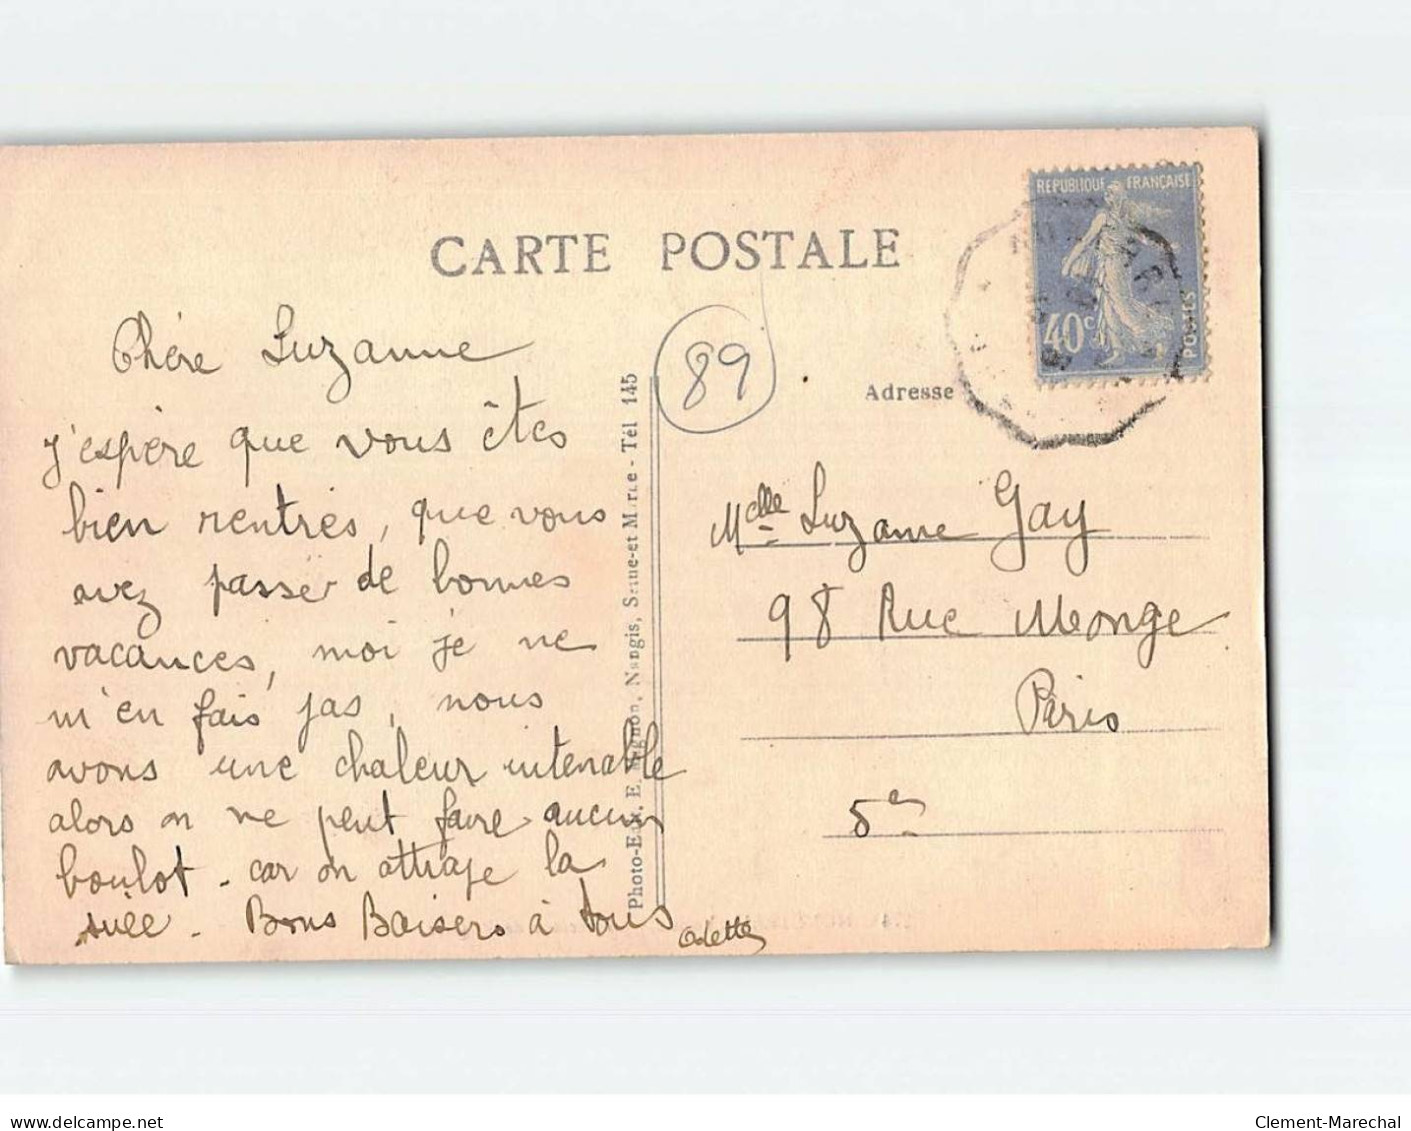 CARTE POSTALE
RÉPUBLIQUE FRANÇAISE
40c
POSTES
89
Adresse
Chère Suzanne
j'espère que vous êtes
bien rentrés, que vous
avez passer de bonnes
vacances, moi je ne
m'en fais pas, nous
avons une chaleur intenable
alors on ne peut faire aucun
boulot - car on attrape la
suée - Bons Baisers à tous
Odette
Photo-Edit. E. Mignon, Nangis, Seine-et Marne - Tél 145
Melle Suzanne Gay
98 Rue Monge
Paris
5e
delcampe.net
Clement-Marechal